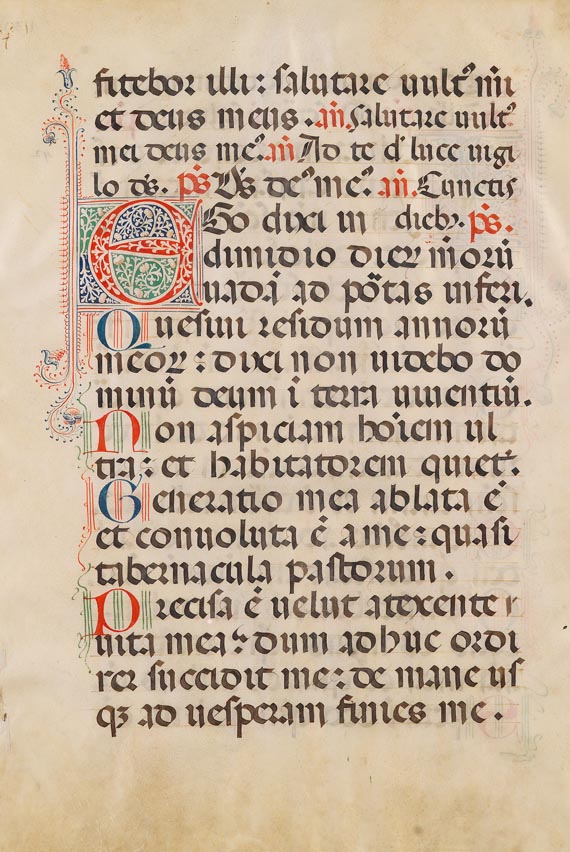 fitebor illi : salutare uult᷒ m̄i
et deus meus . an̄. Salutare uult᷒
mei deus me᷒. an̄ Ad te d̕ luce uigi
lo ds̄. ps̄ Ds̄ de᷒ me᷒. an̄. Cunctis
EGo dixi in dieb3. ps̄.
dimidio dieꝝ meoꝝ
uadā ad portas inferi.
Quesiui residuum annorū
meoꝝ : dixi non uidebo do
minū deum ī terra uiuentiū.
Non aspiciam hoīem ul
tra : et habitatorem quiet᷒.
Generatio mea ablata ē
et conuoluta ē a me : quasi
tabernacula pastorum .
Precisa ē uelut atexente r
uita mea : dum adhuc ordi
rer succidit me : de mane us
q3 ad uesperam finies me .